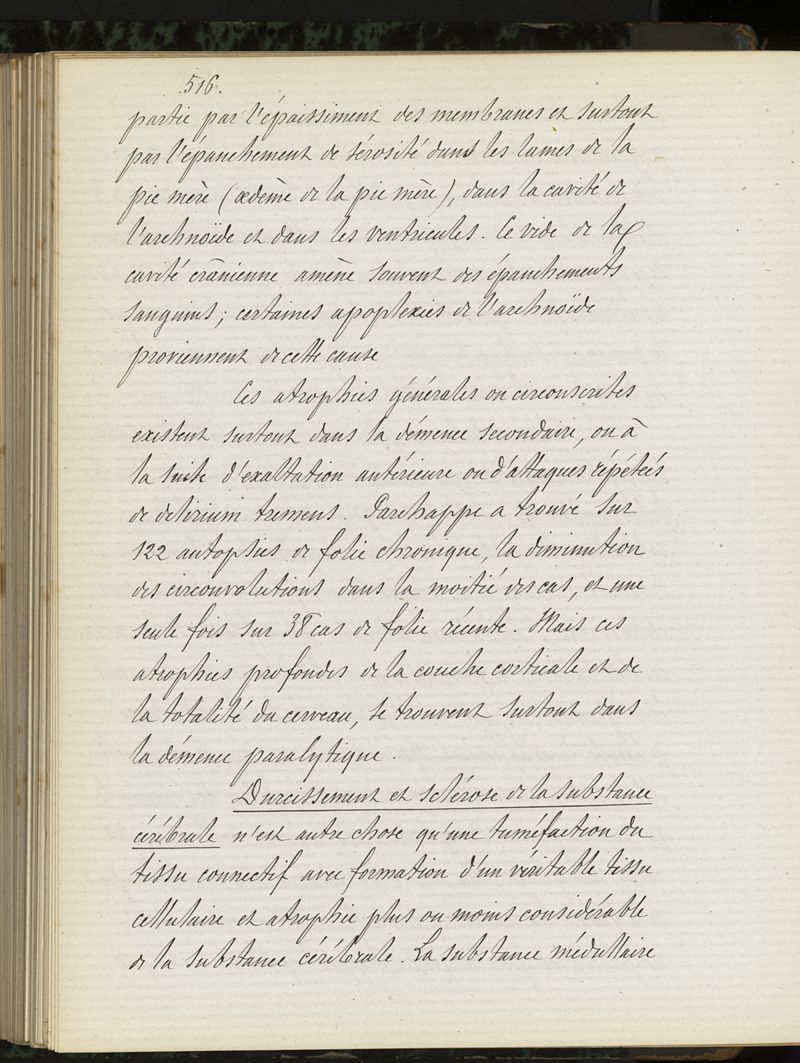 516.
partie par l'épaissiment des membranes et surtout
par l'épanchement de sérosité dans les lames de la
pie mère (œdème de la pie mère), dans la cavité de
l'arehnoïde et dans les ventricules. Ce vide de la
cavité crânienne amène souvent des épanchements
sanguins ; certaines apoplexies de l'arehnoïde
proviennent de cette cause
Ces atrophies générales ou circonscrites
existent surtout dans la démence secondaire, ou à
la suite d'exaltation antérieure ou d'attaques répétées
de delirium tremens. Parchappe a trouvé sur
122 autopsies de folie chronique, la diminution
des circonvolutions dans la moitié des cas, et une
seule fois sur 38 cas de folie récente. Mais ces
atrophies profondes de la couche corticale et de
la totalité du cerveau, se trouvent surtout dans
la démence paralytique.
Durcissement et sclérose de la substance
cérébrale n'est autre chose qu'une tuméfaction du
tissu connectif avec formation d'un véritable tissu
cellulaire et atrophie plus ou moins considérable
de la substance cérébrale. La substance médullaire